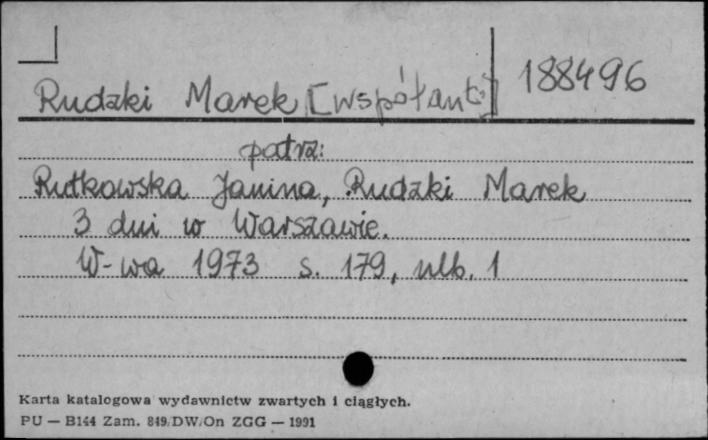 Rudzki Marek [współaut.] 188496
patrz:
Rutkowska Janina, Rudzki Marek
3 dni w Warszawie.
W-wa 1973 s. 179, nlb. 1
Karta katalogowa wydawnictw zwartych i ciągłych.
PU — B144 Zam. 849/DW/On ZGG — 1991